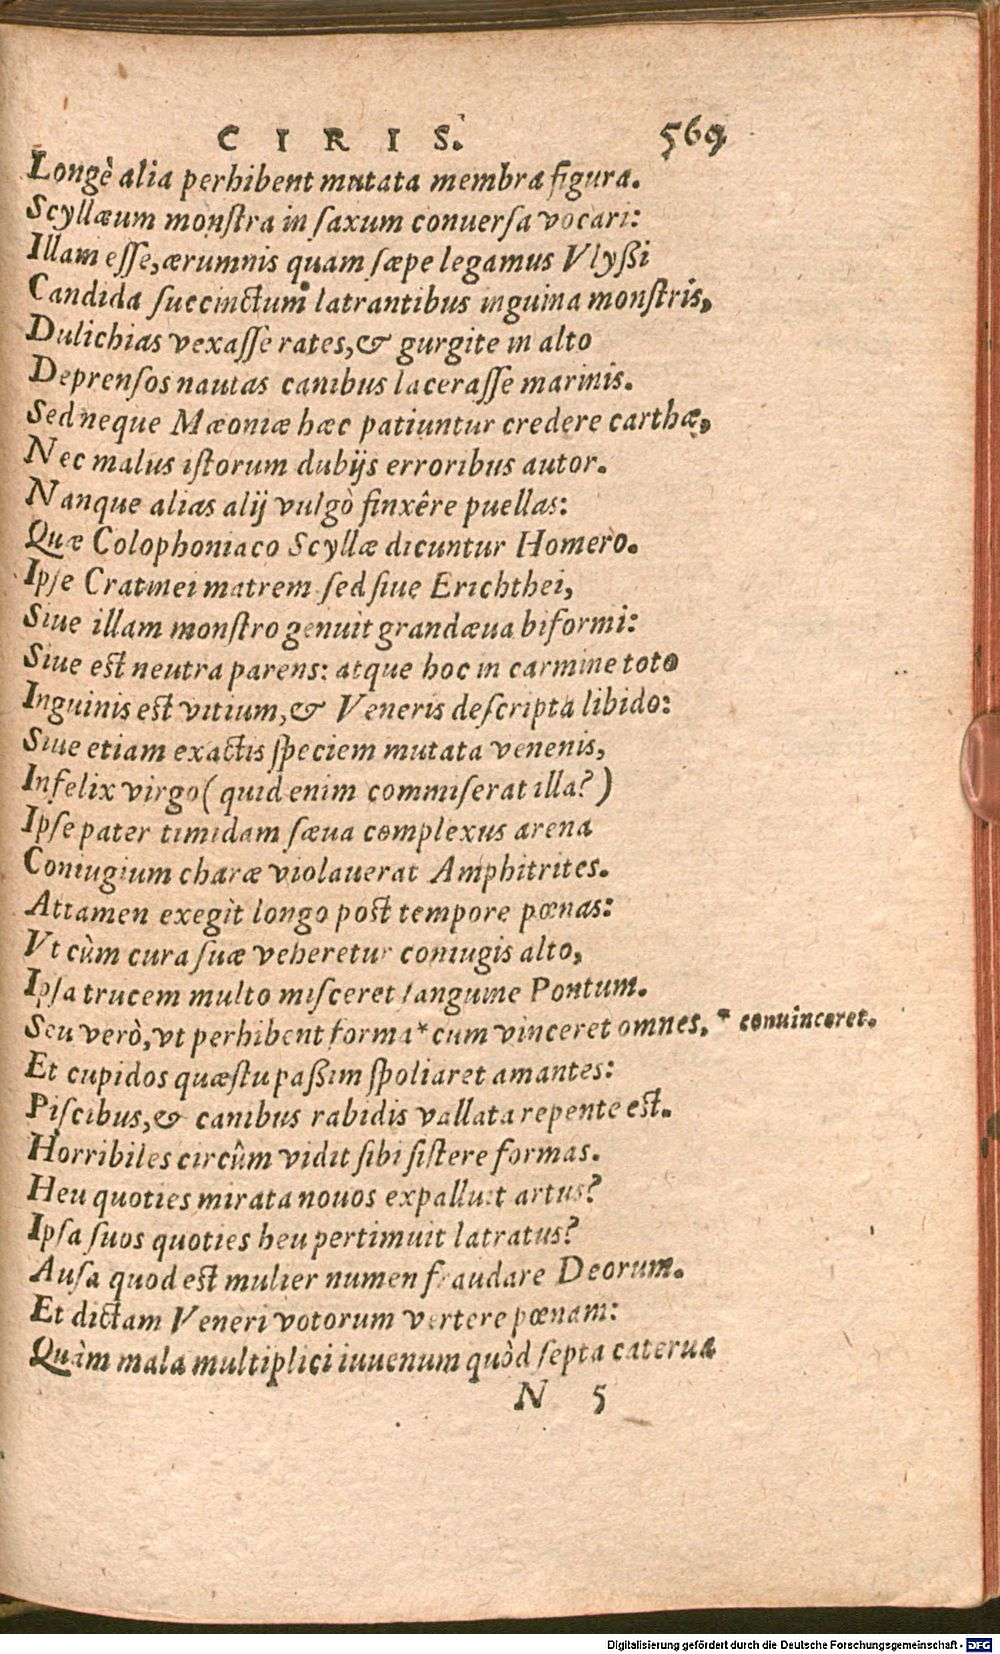 CIRIS. 569
Longè alia perhibent mutata membra figura.
Scyllæum monſtra in ſaxum conuerſa vocari:
Illam eſſe, ærumnis quam ſæpe legamus Vlyßi
Candida ſuccinctum latrantibus inguina monſtris,
Dulichias vexaſſe rates, & gurgite in alto
Deprenſos nautas canibus laceraſſe marinis.
Sed neque Mæoniæ hæc patiuntur credere carthæ,
Nec malus iſtorum dubijs erroribus autor.
Nanque alias alij vulgò finxêre puellas:
Quæ Colophoniaco Scyllæ dicuntur Homero.
Ipſe Cratinei matrem ſed ſiue Erichthei,
Siue illam monſtro genuit grandæua biformi:
Siue eſt neutra parens: atque hoc in carmine toto
Inguinis eſt vitium, & Veneris deſcripta libido:
Siue etiam exactis ſpeciem mutata venenis,
Infelix virgo ( quid enim commiſerat illa? )
Ipſe pater timidam ſæua complexus arena
Coniugium charæ violauerat Amphitrites.
Attamen exegit longo poſt tempore pœnas:
Vt cùm cura ſuæ veheretur coniugis alto,
Ipſa trucem multo miſceret ſanguine Pontum.
Seu verò, vt perhibent forma * cum vinceret omnes, * conuinceret.
Et cupidos quæſtu paßim ſpoliaret amantes:
Piſcibus, & canibus rabidis vallata repente eſt.
Horribiles circûm vidit ſibi ſiſtere formas.
Heu quoties mirata nouos expalluit artus?
Ipſa ſuos quoties heu pertimuit latratus?
Auſa quod eſt mulier numen fraudare Deorum.
Et dictam Veneri votorum vertere pœnam:
Quàm mala multiplici iuuenum quòd ſepta caterua
N 5
Digitalisierung gefördert durch die Deutsche Forschungsgemeinschaft - DFG